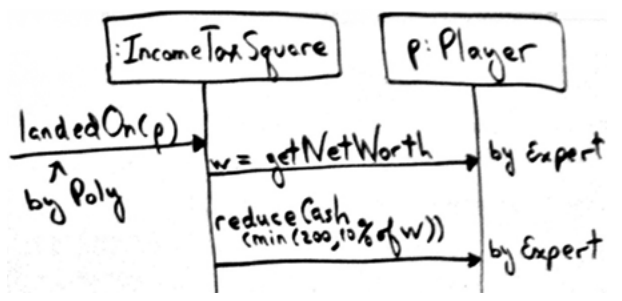 :IncomeTaxSquare
p:Player
landedOn(p)
by Poly
w = getNetWorth
by Expert
reduceCash
(min(200,10% of w))
by Expert